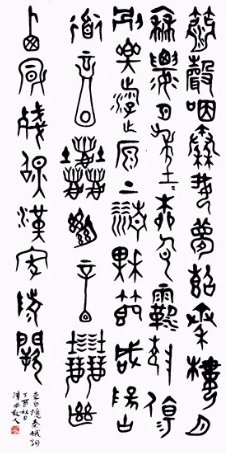 簫聲咽秦娥夢斷秦樓月
秦樓月年〻柳色霸陵傷
別樂游原上清秋節咸陽古
道音塵絕音塵絕
西風殘照漢家陵闕
李白憶秦娥詞